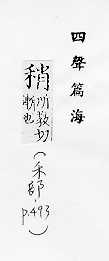 四聲篇海
稍所教切
漸也
（禾部，p.493）